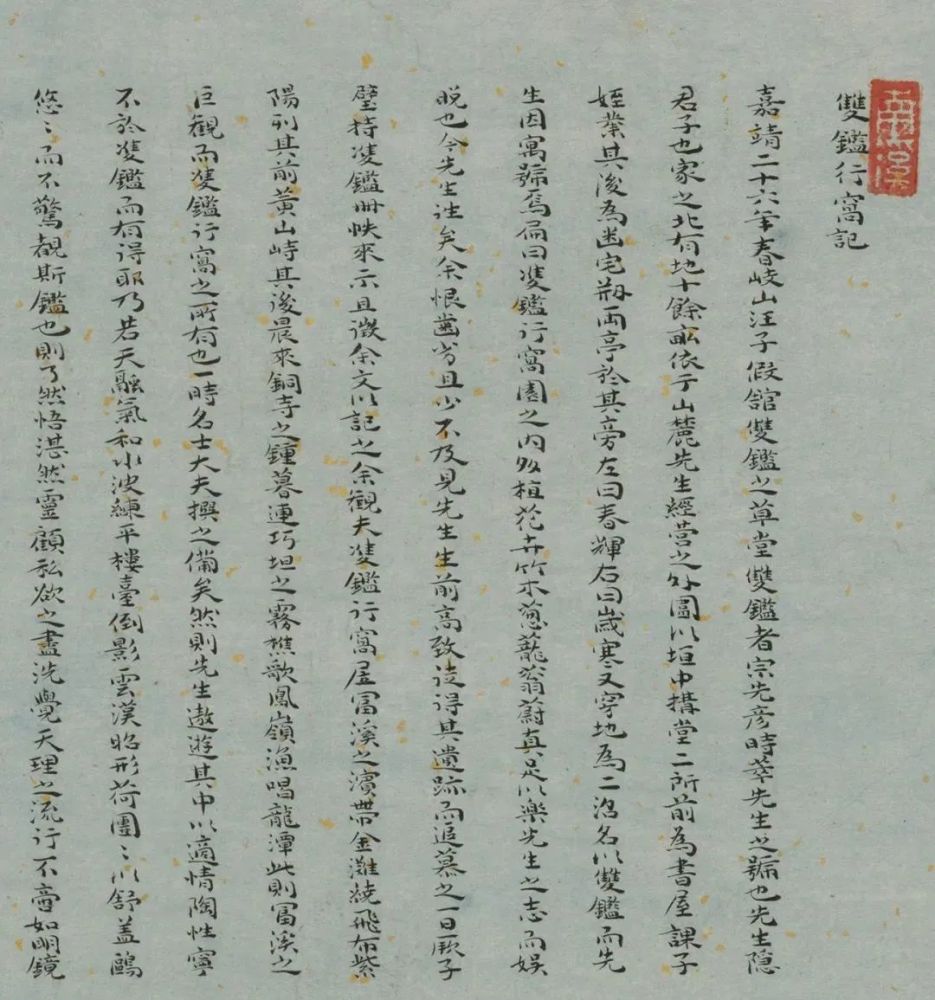 雙鑑行窩記
嘉靖二十六年春岐山汪子假舘雙鑑之草堂雙鑑者宗先彦時萃先生之號也先生隱
君子也家之北有地十餘畝依于山麓先生經營之外圍以垣中搆堂二所前為書屋課子
姪業其後為幽宅剏兩亭於其旁左曰春輝右曰歲寒又穿地為二沼名以雙鑑而先
生因寓號焉扁曰雙鑑行窩園之內多植花卉竹木蔥蘢蓊蔚真足以樂先生之志而娛
晚也今先生往矣余恨齒劣且少不及見先生生前高致徒得其遺跡而追慕之一日厥子
璧持雙鑑冊帙來示且徵余文以記之余觀夫雙鑑行窩居冨溪之濱帶金灘繞飛布紫
陽列其前黃山峙其後晨來銅寺之鐘暮連巧坦之霧樵歌鳳嶺漁唱龍潭此則冨溪之
巨觀而雙鑑行窩之所有也一時名士大夫撰之備矣然則先生遨遊其中以適情陶性寧
不於雙鑑而有得耶乃若天融氣和水波練平樓臺倒影雲漢昭形荷團〻以舒蓋鷗
悠〻而不驚覩斯鑑也則了然悟湛然靈顧私欲之盡洗覺天理之流行不啻如明鏡